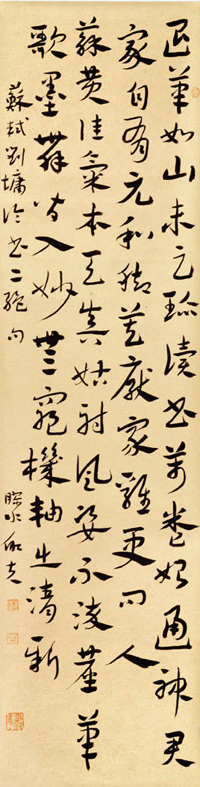 退筆如山未足珍讀書萬卷始通神君
家自有元和腳莫厭家雞更問人
蘇黃佳氣本天真姑射風姿不淩塵筆
歌墨舞皆入妙無窮機軸出清新
蘇軾劉墉論書二絕句